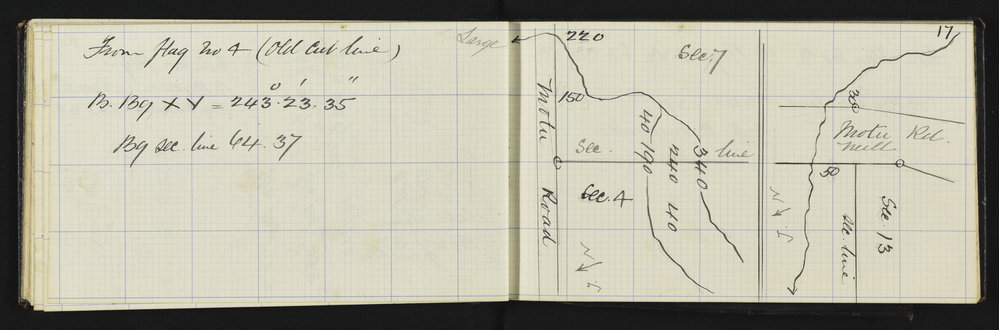 From flag no 4 (Old Cut line)
B. Bg X Y = 243° 23' 35"
Bg sec. line 64. 37
17
Large
220
Sec. 7
150
Motu Road
Sec. line
40 190 240 40 340
Sec. 4
N
300
Motu Rd.
Mill
50
N
Sec. line
Sec. 13